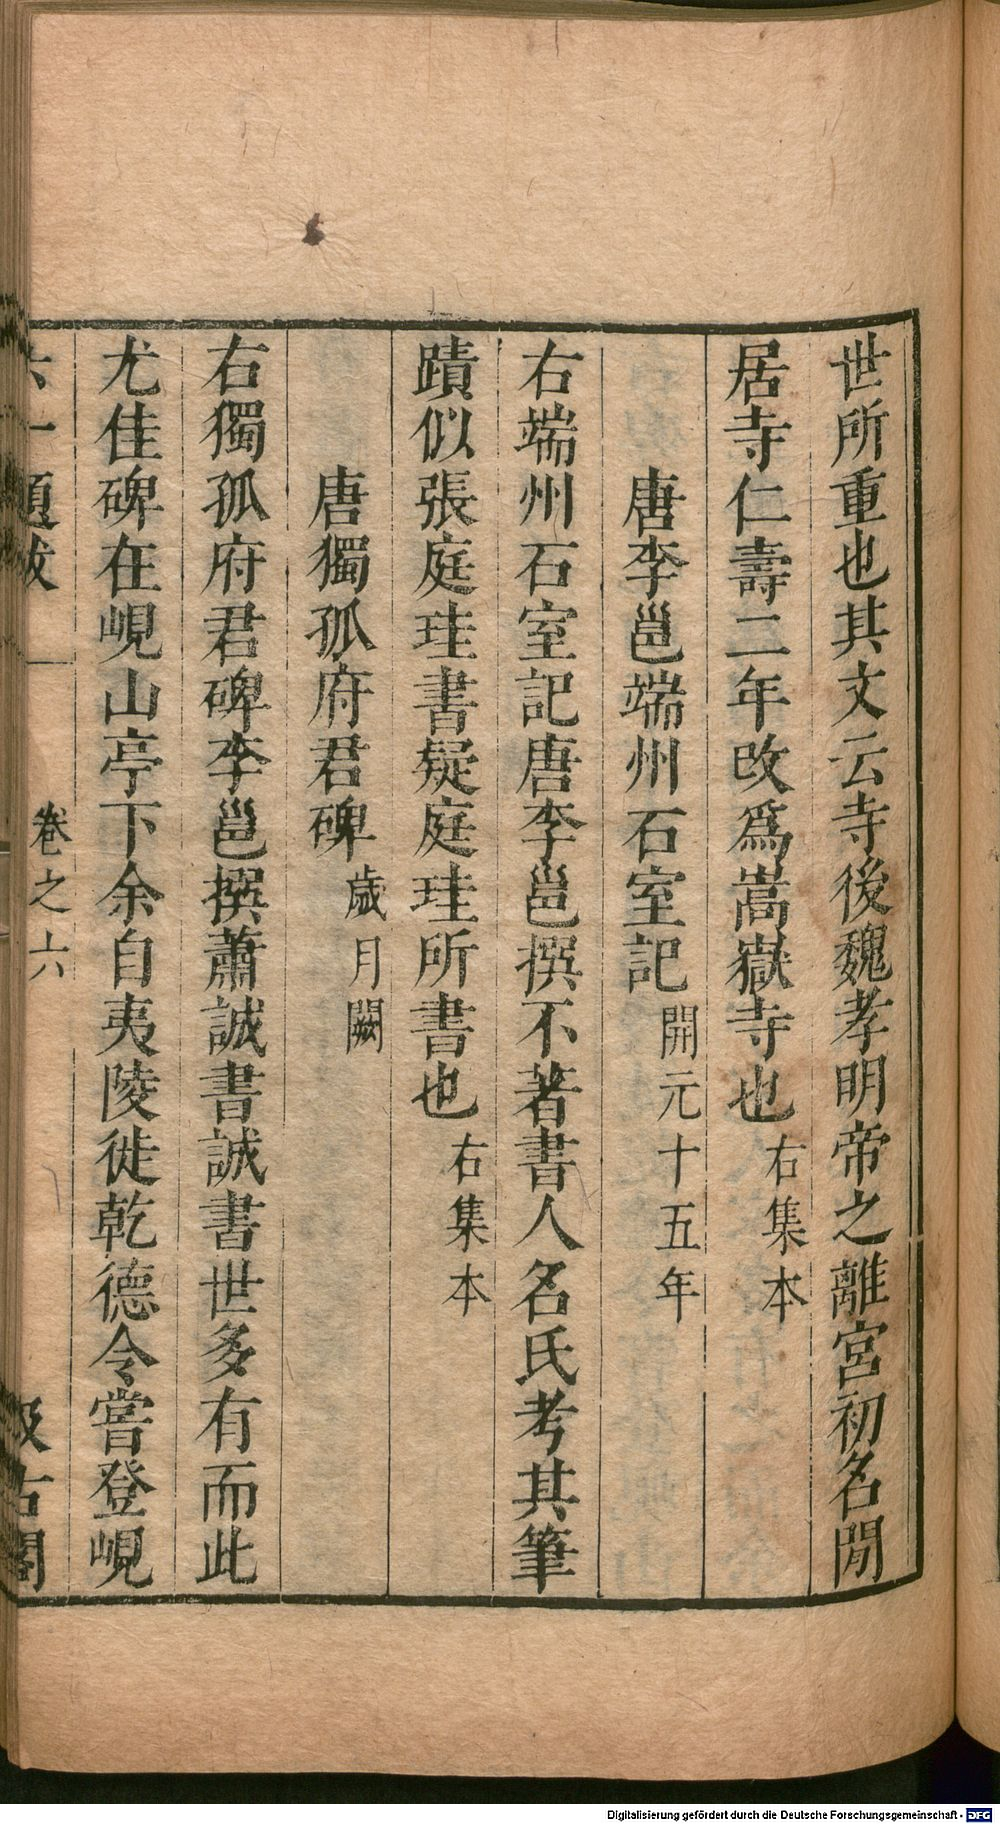 世所重也其文云寺後魏孝明帝之離宮初名閒
居寺仁壽二年改爲嵩嶽寺也右集本
唐李邕端州石室記開元十五年
右端州石室記唐李邕撰不著書人名氏考其筆
蹟似張庭珪書疑庭珪所書也右集本
唐獨孤府君碑歲月闕
右獨孤府君碑李邕撰蕭誠書誠書世多有而此
尤佳碑在峴山亭下余自夷陵徙乾德令嘗登峴
六一題跋 卷之六 汲古閣
Digitalisierung gefördert durch die Deutsche Forschungsgemeinschaft - DFG